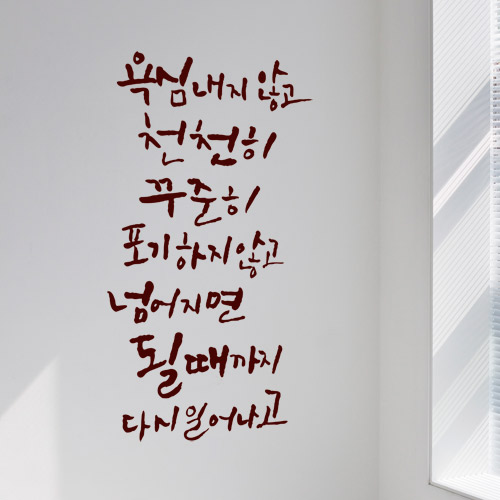 욕심내지 않고
천천히
꾸준히
포기하지 않고
넘어지면
될때까지
다시 일어나고